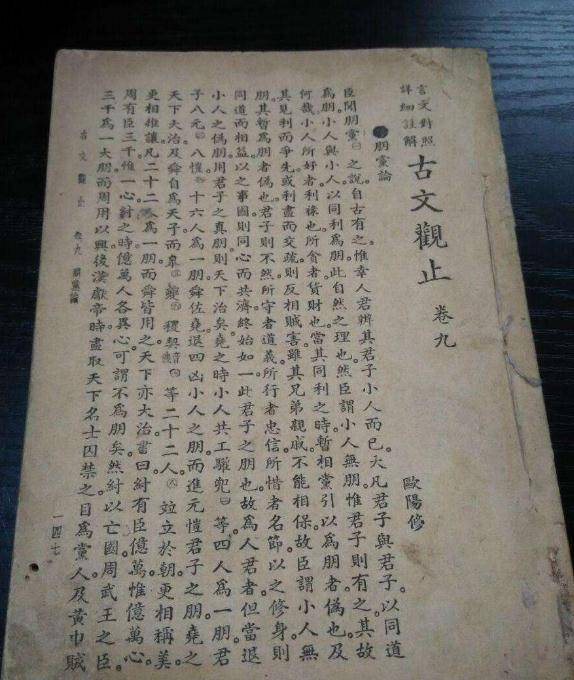 言文對照
詳細註解
古文觀止 卷九
朋黨論 歐陽修
臣聞朋黨㊀之說。自古有之。惟幸人君辨其君子小人而已。大凡君子與君子。以同道
爲朋。小人與小人。以同利爲朋。此自然之理也。然臣謂小人無朋。惟君子則有之。其故
何哉。小人所好者利祿也。所貪者貨財也。當其同利之時。暫相黨引以爲朋者。偽也。及
其見利而爭先。或利盡而交疏。則反相賊害。雖其兄弟親戚。不能相保。故臣謂小人無
朋。其暫爲朋者。偽也。君子則不然。所守者道義。所行者忠信。所惜者名節。以之修身。則
同道而相益。以之事國。則同心而共濟。終始如一。此君子之朋也。故爲人君者。但當退
小人之偽朋。用君子之真朋。則天下治矣。堯之時。小人共工驩兜等四人爲一朋。君
子八元八愷十六人爲一朋。舜佐堯。退四凶小人之朋。而進元愷君子之朋。堯之
天下大治。及舜自爲天子。而皋夔稷契等二十二人竝立於朝。更相稱美。
更相推讓。凡二十二人爲一朋。而舜皆用之。天下亦大治。書曰。紂有臣億萬。惟億萬心。
周有臣三千。惟一心。紂之時。億萬人各異心。可謂不爲朋矣。然紂以亡國。周武王之臣。
三千爲一大朋。而周用以興。後漢獻帝時。盡取天下名士囚禁之。目爲黨人。及黃巾賊
古文觀止 卷九 朋黨論 一四七